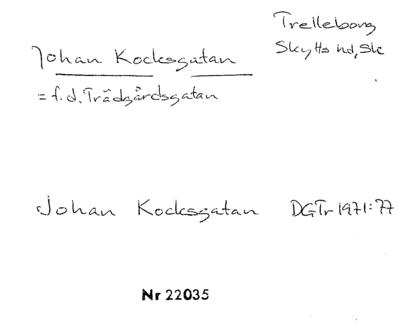 Trelleborg
Skytts hd, Sk
Johan Kocksgatan
= f.d. Trädgårdsgatan
Johan Kocksgatan DGTr 1971:77
Nr 22035